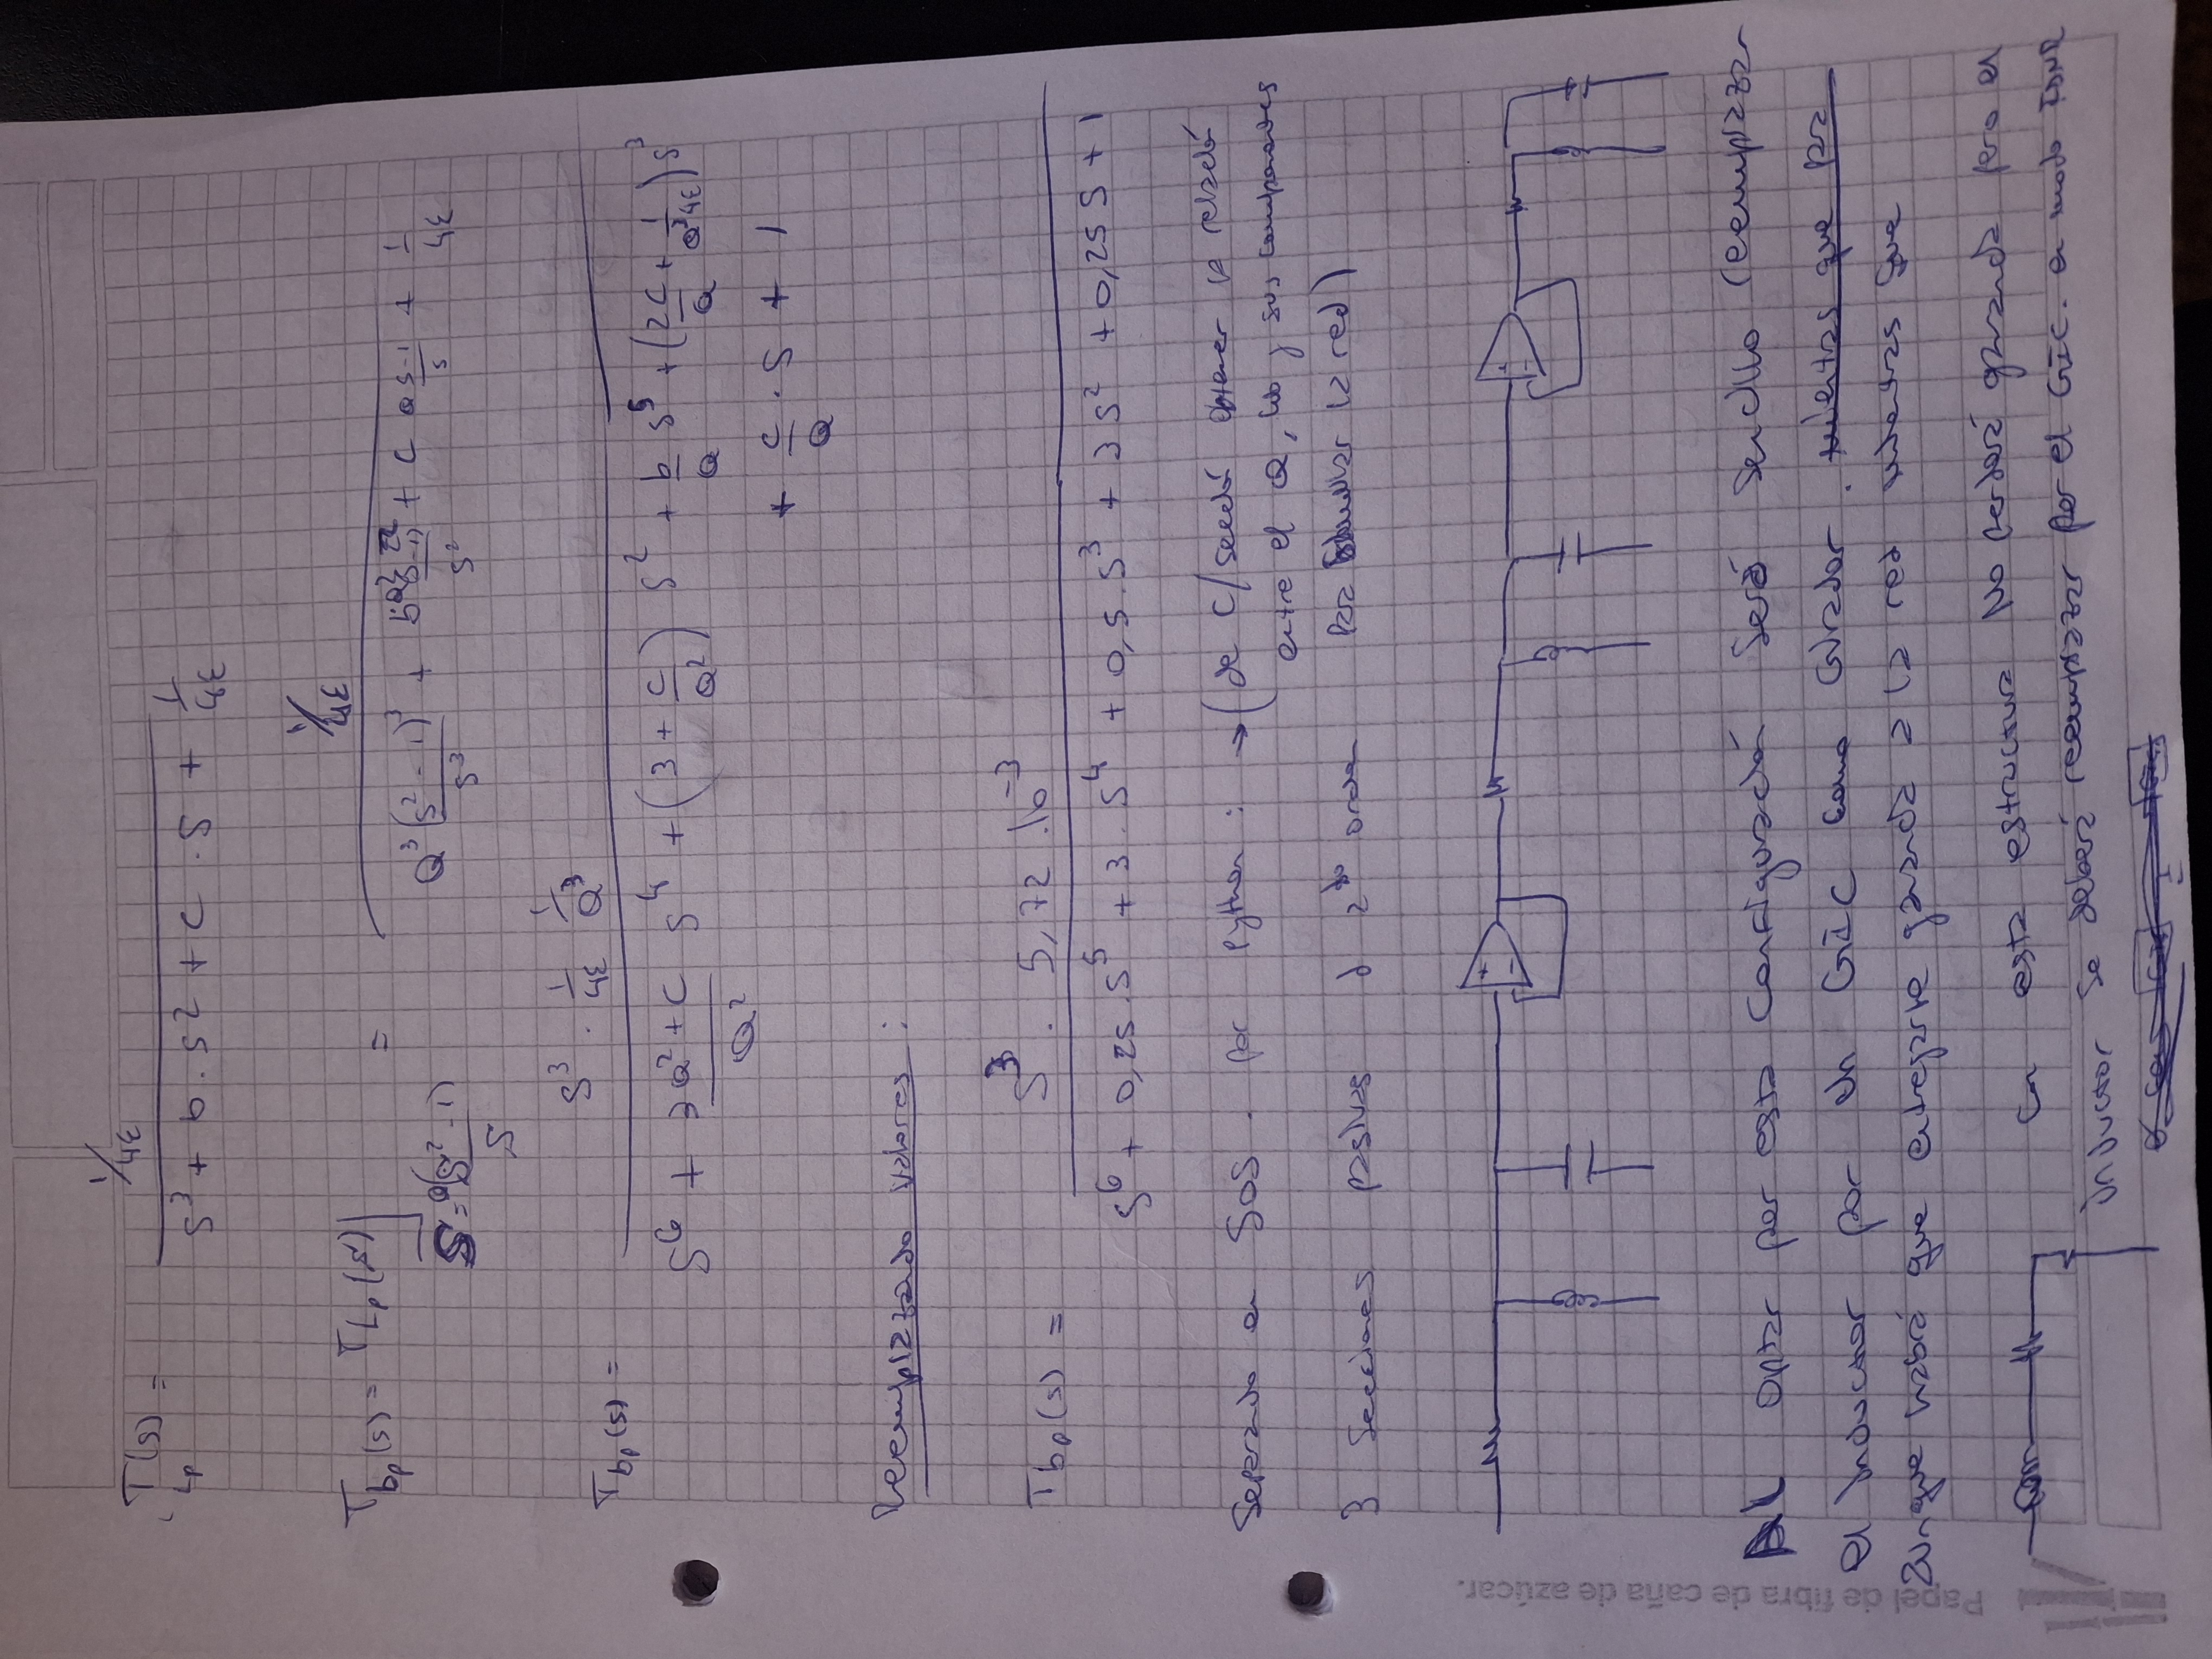 T(s) = 1/4ε
Lp s³ + b . s² + c . s + 1/4ε
Tbp(s) = TLp(s)| = 1/4ε
s = Q(s² - 1)/s Q³(s² - 1)³/s³ + + c Q s-1/s + 1/4ε
Tbp(s) = s³ . 1/4ε 1/Q³
s⁶ + 3Q² + c/Q² s⁴ + (3 + c/Q²) s² + b/Q s⁵ + (2c/Q + 1/Q³4ε) s³
+ c/Q . s + 1
Reemplazando valores :
Tbp(s) = s³ . 5,72 .10⁻³
s⁶ + 0,25 . s⁵ + 3 . s⁴ + 0,5 . s³ + 3 s² + 0,25 s + 1
Separando en SOS . por python : → (de c/sección obtener la relación
entre el Q, ω0 y sus componentes
3 secciones pasivas d 2do orden para la red)
+
-
+
-
AL optar por esta configuración será sencillo reemplazar
el inductor por un GIC como Girador .
aunque habrá que entregarle ganancia a la red mientras que
con esta estructura No perderá ganancia pero el
inductor se deberá reemplazar por el GIC. en modo FDNR
Papel de fibra de caña de azúcar.